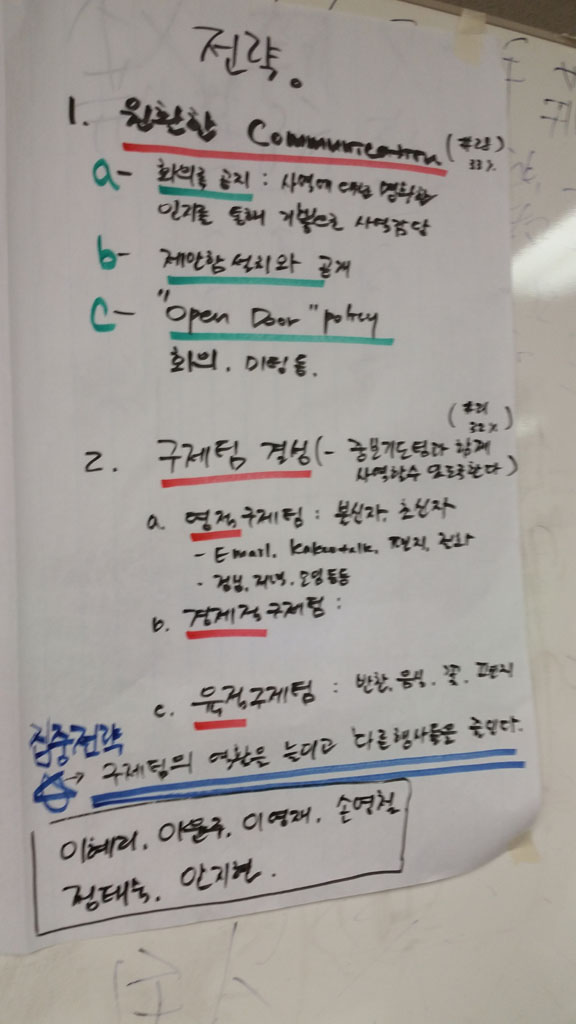 전략.
1. 원활한 Communication (#28) 33%
a- 회의록 공지 : 사역에 대한 명확한
인지를 통해 기쁨으로 사역감당
b- 제안함 설치와 공개
c- "Open Door" policy
회의, 미팅등.
(#21 32%)
2. 구제팀 결성 (- 중보기도팀과 함께
사역할수 있도록한다)
a. 영적구제팀 : 불신자, 초신자
- Email, Kakaotalk, 편지, 전화
- 점심, 저녁, 모임 등등
b. 경제적구제팀 :
c. 육적구제팀 : 반찬, 음식, 꽃, 편지
집중전략
→ 구제팀의 역할은 늘리고 다른행사들은 줄인다.
이혜리, 이영재, 손영철
정태숙, 안지현.